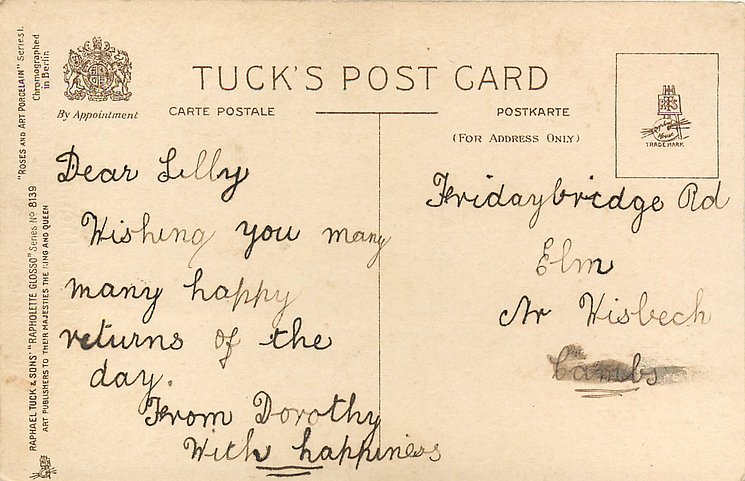 "ROSES AND ART PORCELAIN" Series I.
Chromographed
in Berlin
RAPHAEL TUCK & SONS' "RAPHOLETTE GLOSSO" Series No 8139
ART PUBLISHERS TO THEIR MAJESTIES THE KING AND QUEEN
By Appointment
TUCK'S POST CARD
CARTE POSTALE
POSTKARTE
(FOR ADDRESS ONLY)
TRADE MARK
Dear Lilly
Wishing you many
many happy
returns of the
day.
From Dorothy
With happiness
Fridaybridge Rd
Elm
Nr Wisbech
Cambs